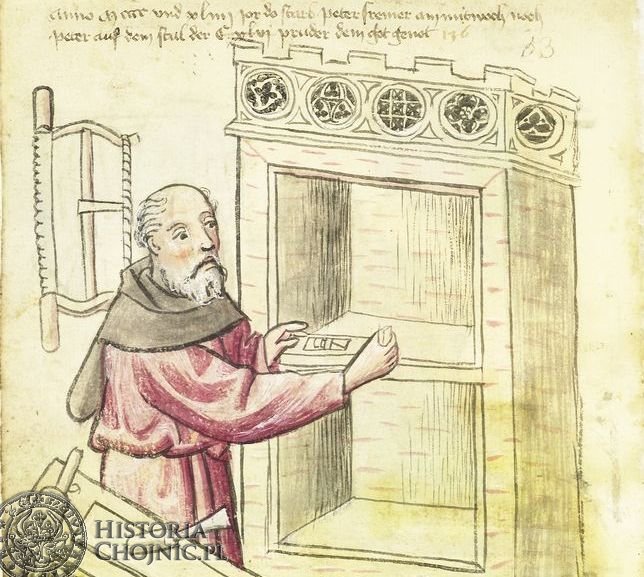 Anno M cccc und xliiii jor do starb peter screiner am mitwoch noch
peter auf dem stul der C xlvi pruder dem got genot 136
53
HISTORIA
CHOJNIC.PL